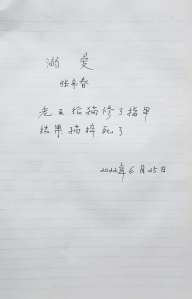 溺爱
张希春
老王给猫修了指甲
结果猫摔死了
2022年6月25日